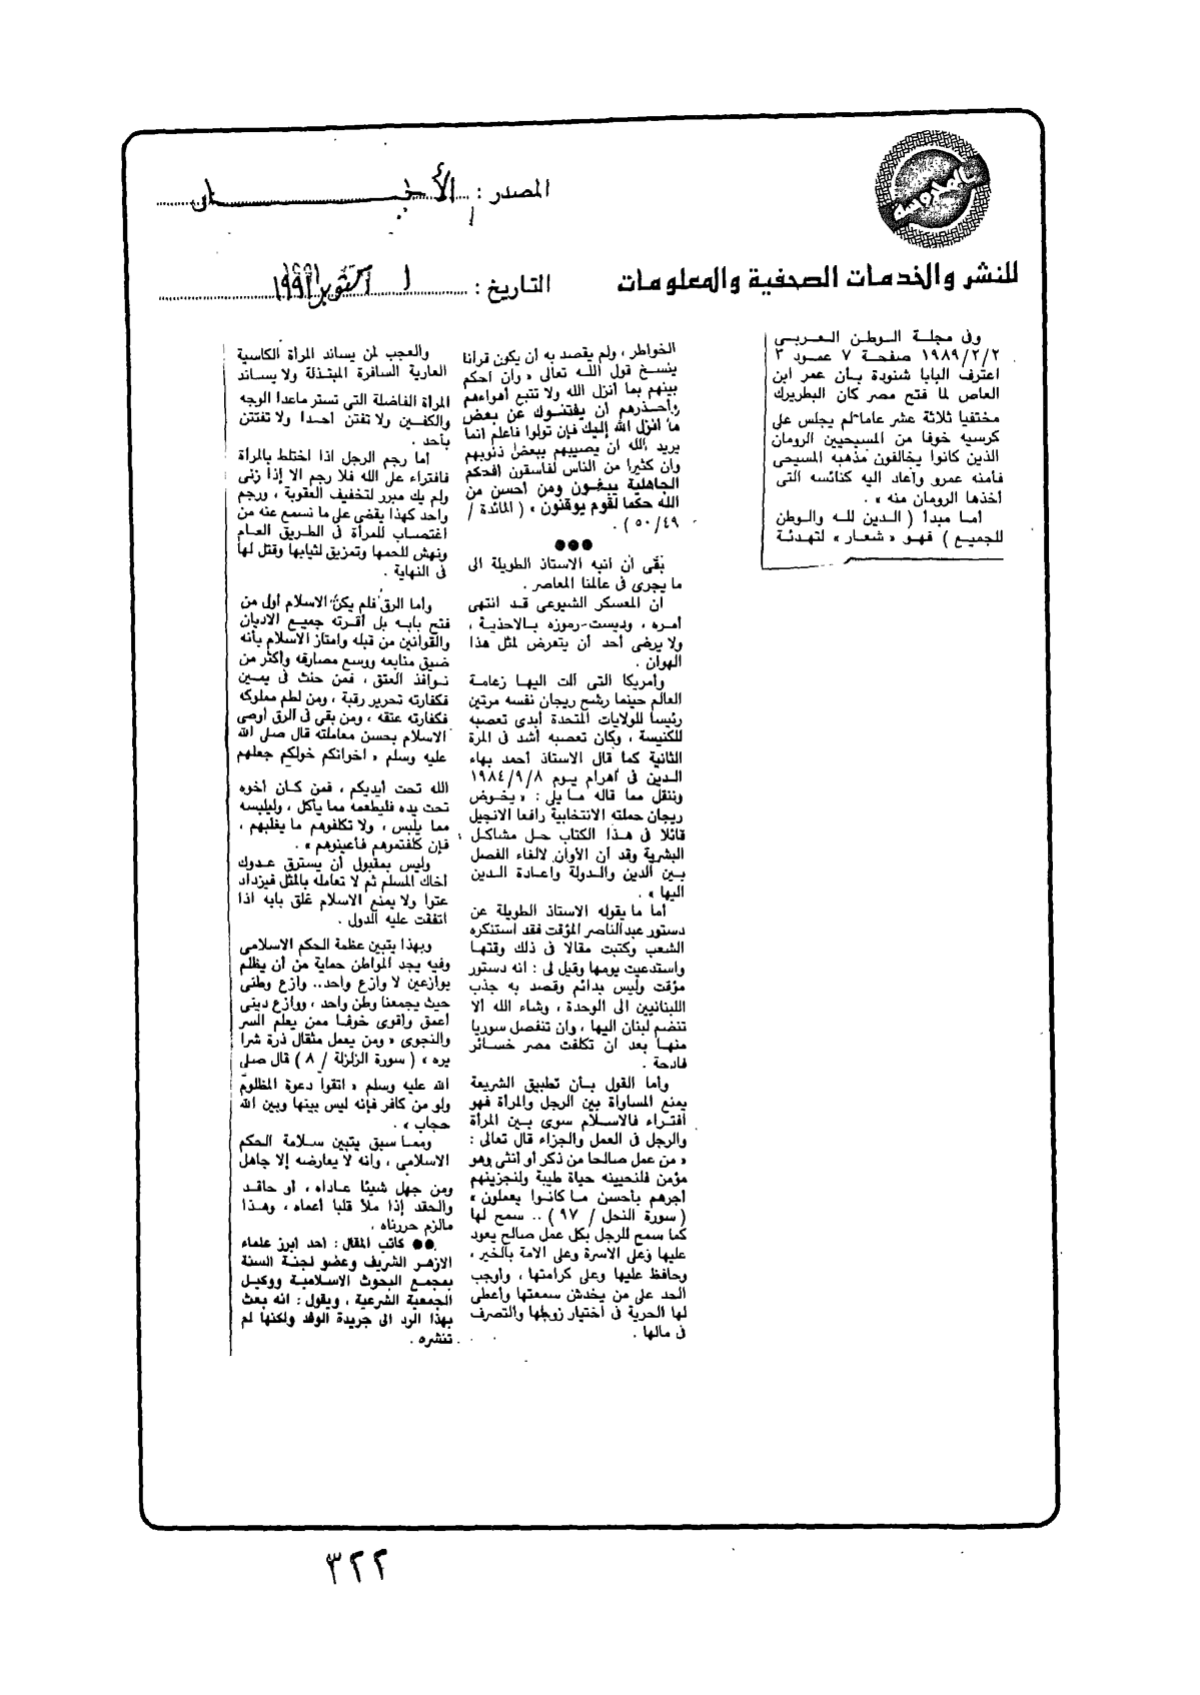 المصدر : الأخبار
للنشر والخدمات الصحفية والمعلومات
التاريخ : ١ اكتوبر ١٩٩٢
وفى مجلة الوطن العربى
١٩٨٩/٢/٢ صفحة ٧ عمود ٣
اعترف البابا شنودة بأن عمر ابن
العاص لما فتح مصر كان البطريرك
مختفيا ثلاثة عشر عاما لم يجلس على
كرسيه خوفا من المسيحيين الرومان
الذين كانوا يخالفون مذهبه المسيحى
فأمنه عمرو وأعاد اليه كنائسه التى
أخذها الرومان منه » .
أما مبدأ ( الدين لله والوطن
للجميع ) فهو « شعار » لتهدئة
الخواطر ، ولم يقصد به أن يكون قرآنا
ينسخ قول الله تعالى « وأن احكم
بينهم بما أنزل الله ولا تتبع أهواءهم
وأحذرهم أن يفتنوك عن بعض
ما أنزل الله إليك فإن تولوا فاعلم انما
يريد الله ان يصيبهم ببعض ذنوبهم
وان كثيرا من الناس لفاسقون أفحكم
الجاهلية يبغون ومن أحسن من
الله حكما لقوم يوقنون » ( المائدة /
٥٠/٤٩ ) .
●●●
بقى أن أنبه الاستاذ الطويلة الى
ما يجرى فى عالمنا المعاصر .
ان المعسكر الشيوعى قد انتهى
أمره ، وديست رموزه بالاحذية ،
ولا يرضى أحد أن يتعرض لمثل هذا
الهوان .
وأمريكا التى آلت اليها زعامة
العالم حينما رشح ريجان نفسه مرتين
رئيسا للولايات المتحدة أبدى تعصبه
للكنيسة ، وكان تعصبه أشد فى المرة
الثانية كما قال الاستاذ أحمد بهاء
الدين فى أهرام يوم ١٩٨٤/٩/٨
وننقل مما قاله ما يلى : « يخوض
ريجان حملته الانتخابية رافعا الانجيل
قائلا فى هذا الكتاب حل مشاكل
البشرية وقد آن الأوان لالغاء الفصل
بين الدين والدولة واعادة الدين
اليها » .
أما ما يقوله الاستاذ الطويلة عن
دستور عبدالناصر المؤقت فقد استنكره
الشعب وكتبت مقالا فى ذلك وقتها
واستدعيت يومها وقيل لى : انه دستور
مؤقت وليس بدائم وقصد به جذب
اللبنانيين الى الوحدة ، وشاء الله ألا
تنضم لبنان اليها ، وان تنفصل سوريا
منها بعد ان تكلفت مصر خسائر
فادحة .
وأما القول بأن تطبيق الشريعة
يمنع المساواة بين الرجل والمرأة فهو
افتراء فالاسلام سوى بين المرأة
والرجل فى العمل والجزاء قال تعالى :
« من عمل صالحا من ذكر أو أنثى وهو
مؤمن فلنحيينه حياة طيبة ولنجزينهم
أجرهم بأحسن ما كانوا يعملون »
( سورة النحل / ٩٧ ) .. سمح لها
كما سمح للرجل بكل عمل صالح يعود
عليها وعلى الاسرة وعلى الامة بالخير ،
وحافظ عليها وعلى كرامتها ، وأوجب
الحد على من يخدش سمعتها وأعطى
لها الحرية فى أختيار زوجها والتصرف
فى مالها .
والعجب لمن يساند المرأة الكاسية
العارية السافرة المبتذلة ولا يساند
المرأة الفاضلة التى تستر ماعدا الوجه
والكفين ولا تفتن أحدا ولا تفتتن
بأحد .
أما رجم الرجل اذا اختلط بالمرأة
فافتراء على الله فلا رجم الا إذا زنى
ولم يك مبرر لتخفيف العقوبة ، ورجم
واحد كهذا يقضى على ما نسمع عنه من
اغتصاب للمرأة فى الطريق العام
ونهش للحمها وتمزيق لثيابها وقتل لها
فى النهاية .
وأما الرق فلم يكن الاسلام أول من
فتح بابه بل أقرته جميع الاديان
والقوانين من قبله وامتاز الاسلام بأنه
ضيق منابعه ووسع مصارفه وأكثر من
نوافذ العتق ، فمن حنث فى يمين
فكفارته تحرير رقبة ، ومن لطم مملوكه
فكفارته عتقه ، ومن بقى فى الرق أوصى
الاسلام بحسن معاملته قال صلى الله
عليه وسلم « اخوانكم خولكم جعلهم
الله تحت أيديكم ، فمن كان أخوه
تحت يده فليطعمه مما يأكل ، وليلبسه
مما يلبس ، ولا تكلفوهم ما يغلبهم ،
فإن كلفتموهم فأعينوهم » .
وليس بمقبول أن يسترق عدوك
أخاك المسلم ثم لا تعامله بالمثل فيزداد
عتوا ولا يمنع الاسلام غلق بابه اذا
اتفقت عليه الدول .
وبهذا يتبين عظمة الحكم الاسلامى
وفيه يجد المواطن حماية من أن يظلم
بوازعين لا وازع واحد.. وازع وطنى
حيث يجمعنا وطن واحد ، ووازع دينى
أعمق وأقوى خوفا ممن يعلم السر
والنجوى « ومن يعمل مثقال ذرة شرا
يره » ( سورة الزلزلة / ٨ ) قال صلى
الله عليه وسلم « اتقوا دعوة المظلوم
ولو من كافر فإنه ليس بينها وبين الله
حجاب » .
ومما سبق يتبين سلامة الحكم
الاسلامى ، وانه لا يعارضه إلا جاهل
ومن جهل شيئا عاداه ، أو حاقد
والحقد إذا ملأ قلبا أعماه ، وهذا
مالزم حررناه .
●● كاتب المقال : أحد أبرز علماء
الازهر الشريف وعضو لجنة السنة
بمجمع البحوث الاسلامية ووكيل
الجمعية الشرعية ، ويقول : انه بعث
بهذا الرد الى جريدة الوفد ولكنها لم
تنشره .
٣٢٢